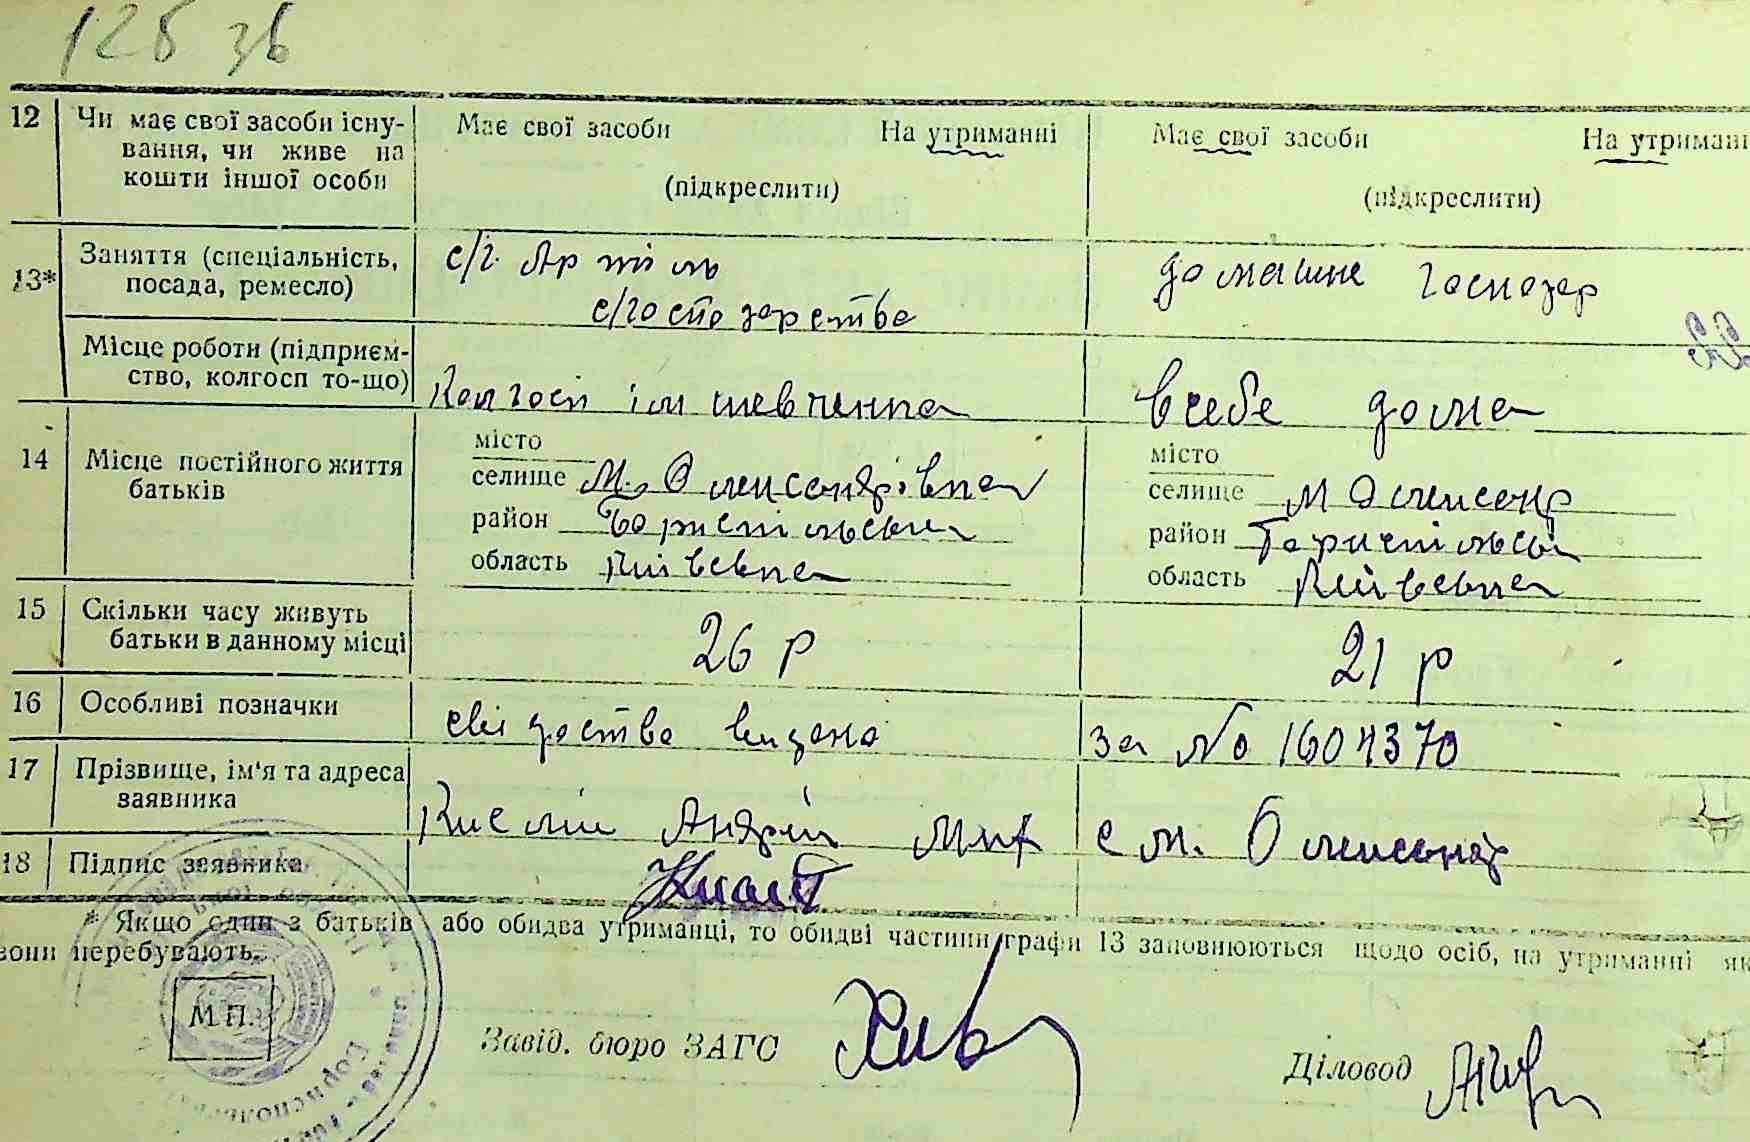 126 зв
12 Чи має свої засоби існу- Має свої засоби На утриманні Має свої засоби На утриманні
вання, чи живе на
кошти іншої особи (підкреслити) (підкреслити)
13* Заняття (спеціальність, с/г. Артіль домашне господар
посада, ремесло) с/господарства
Місце роботи (підприєм-
ство, колгосп то-що) Колгосп ім шевченка в себе дома
14 Місце постійного життя місто місто
батьків селище М. Олександрівка селище М Олександр
район Бориспільська район Бориспільськ
область Київська область Київська
15 Скільки часу живуть 26 р 21 р
батьки в данному місці
16 Особливі позначки свідоство видано за № 1604370
17 Прізвище, ім'я та адреса
заявника Кислій Андрій Мих с М. Олександр
18 Підпис заявника
* Якщо один з батьків або обидва утриманці, то обидві частини графи 13 заповнюються щодо осіб, на утриманні як
вони перебувають.
М.П.
Завід. бюро ЗАГС Діловод